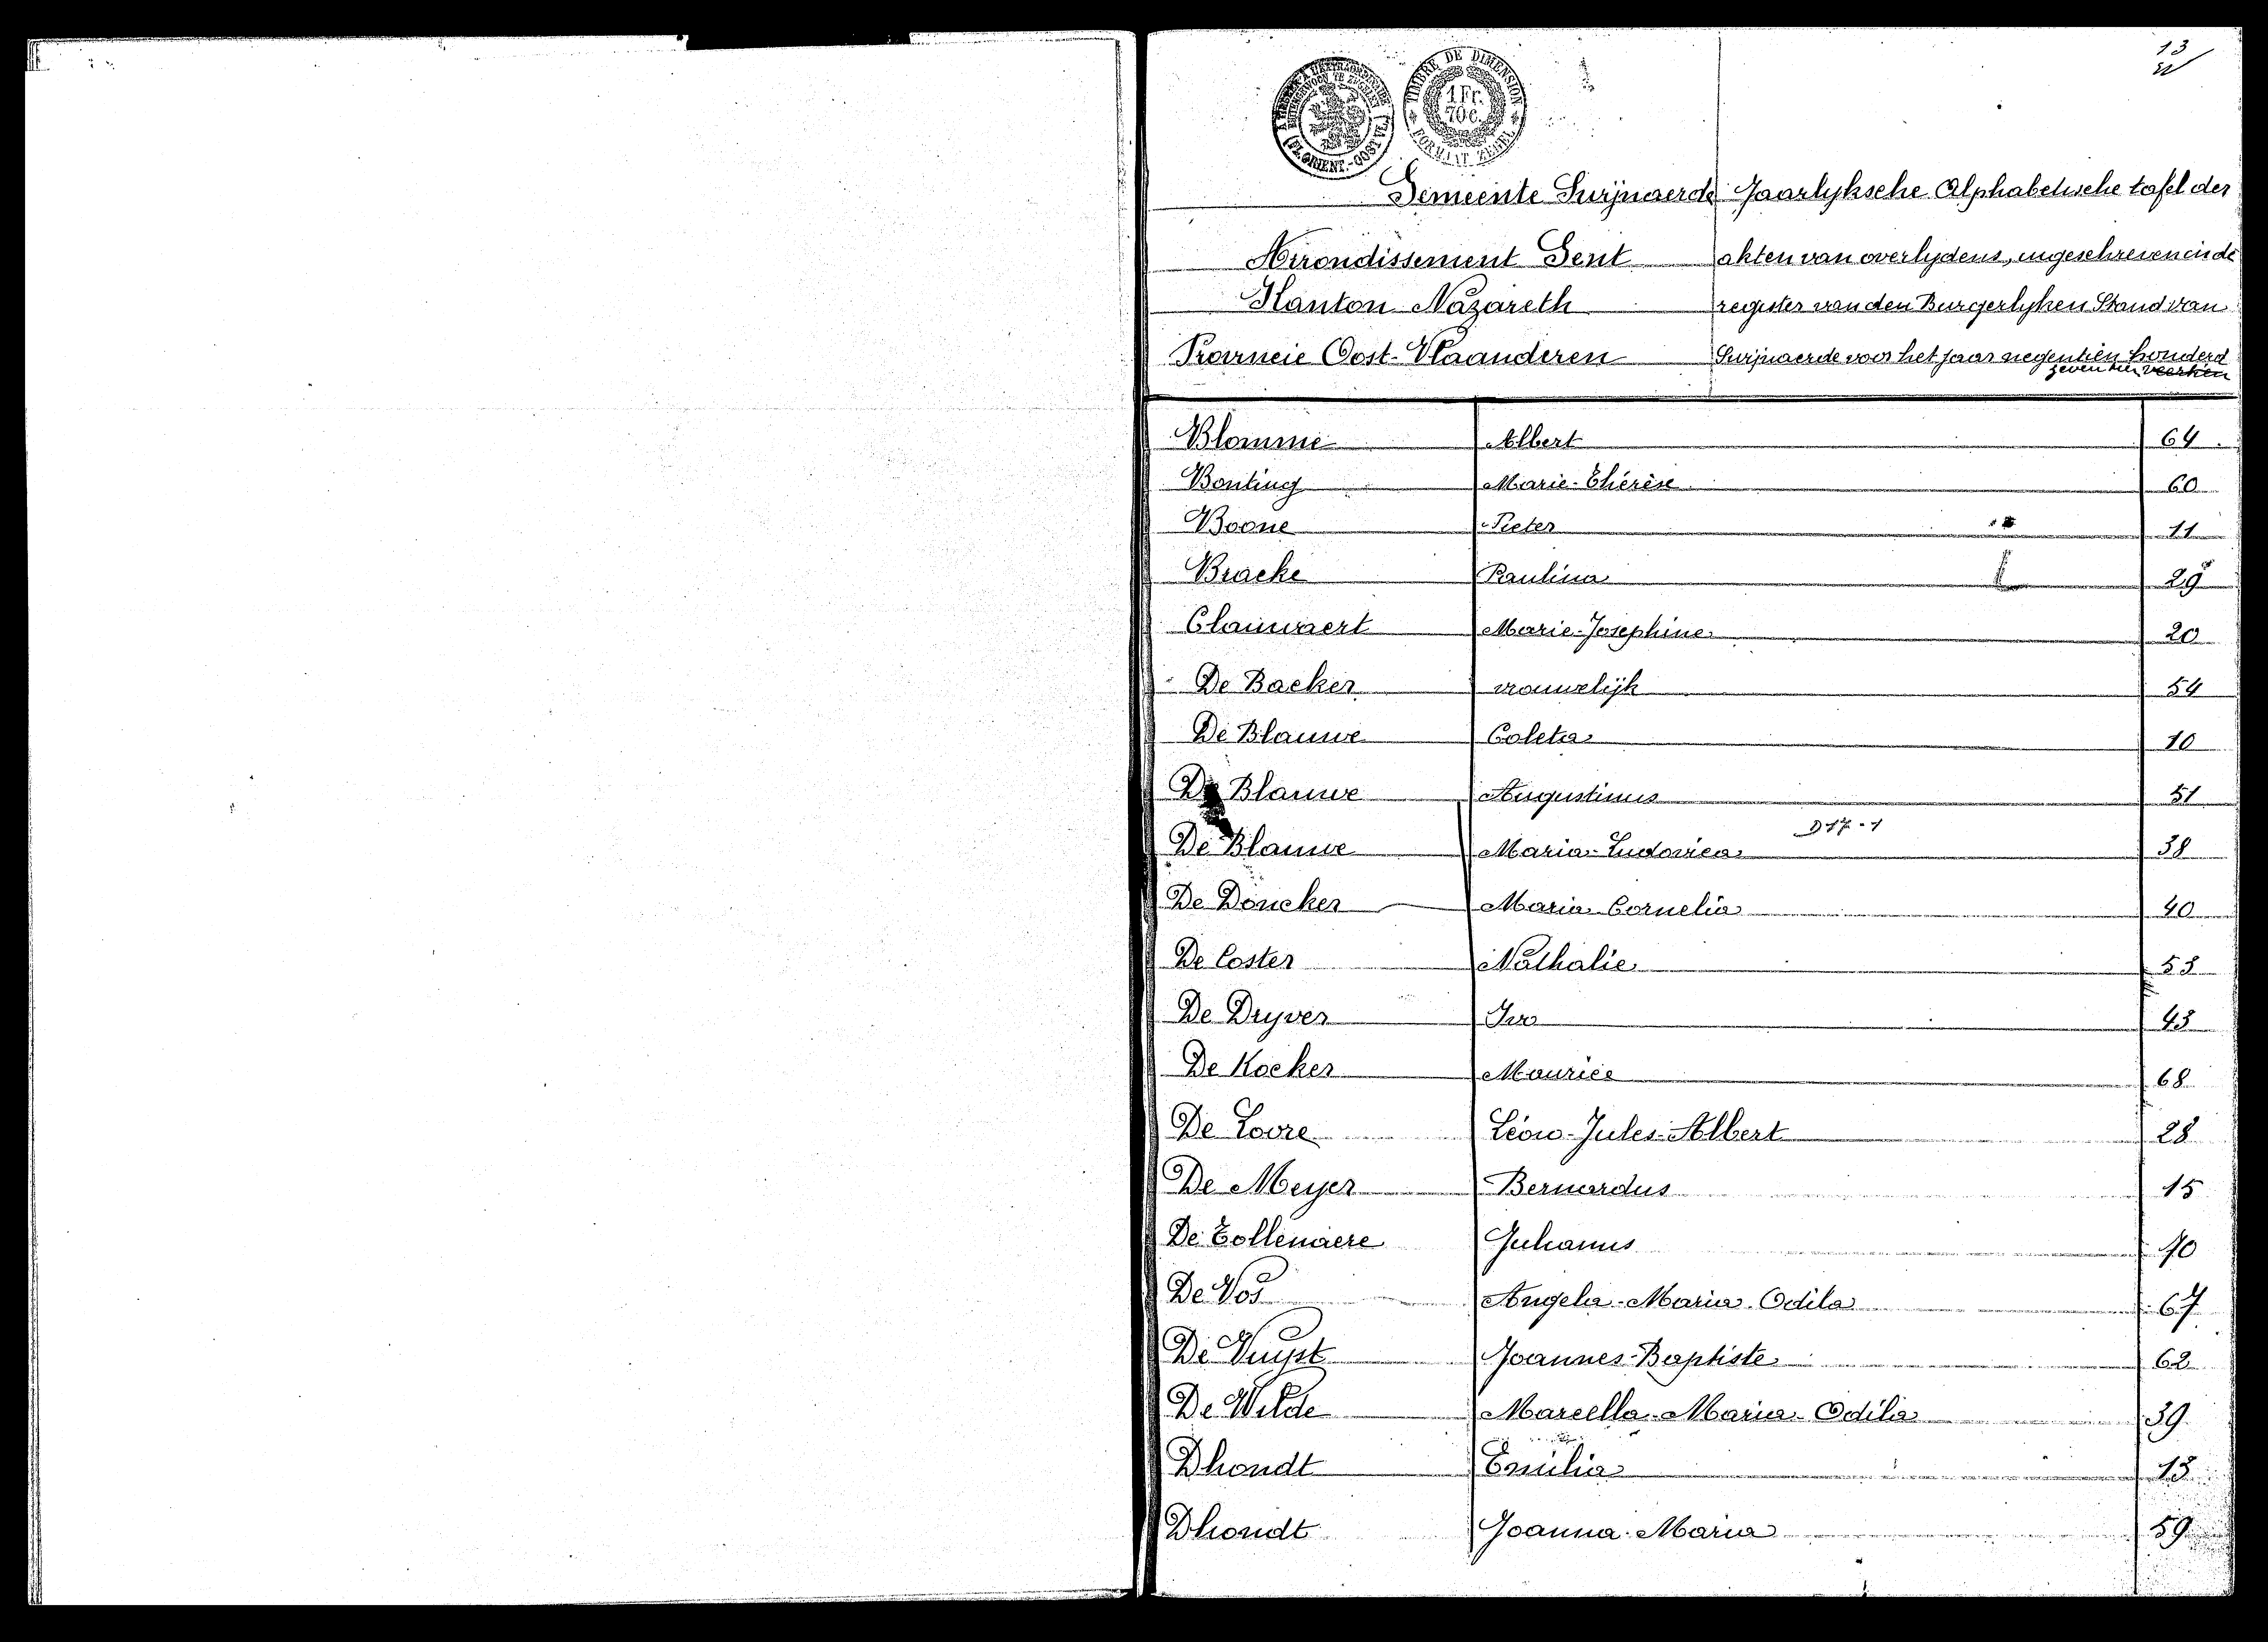 13
TIMBRE DE DIMENSION
1 Fr.
70 c.
FORMAAT ZEGEL
FL. ORIENT.-OOST VL.
Gemeente Swijnaerde Jaarlyksche Alphabetische tafel der
Arrondissement Gent akten van overlydens, ingeschreven in de
Kanton Nazareth register van den Burgerlyken Stand van
Provincie Oost-Vlaanderen Swijnaerde voor het jaar negentien honderd
zeventien veertien
Blomme Albert 64
Bonting Marie-Thérèse 60
Boone Pieter 11
Bracke Paulina 29
Clauwaert Marie-Josephine 20
De Backer vrouwelijk 54
De Blauwe Coleta 10
De Blauwe Augustinus 51
D 17 - 1
De Blauwe Maria-Ludovica 38
De Doncker Maria Cornelia 40
De Coster Nathalie 53
De Dryver Ivo 43
De Kocker Maurice 68
De Loore Léon-Jules-Albert 28
De Meyer Bernardus 15
De Tollenaere Julianus 70
De Vos Angela-Maria-Odila 67
De Vuyst Joannes-Baptiste 62
De Wilde Marcella-Maria-Odilia 39
Dhondt Emilia 13
Dhondt Joanna-Maria 59